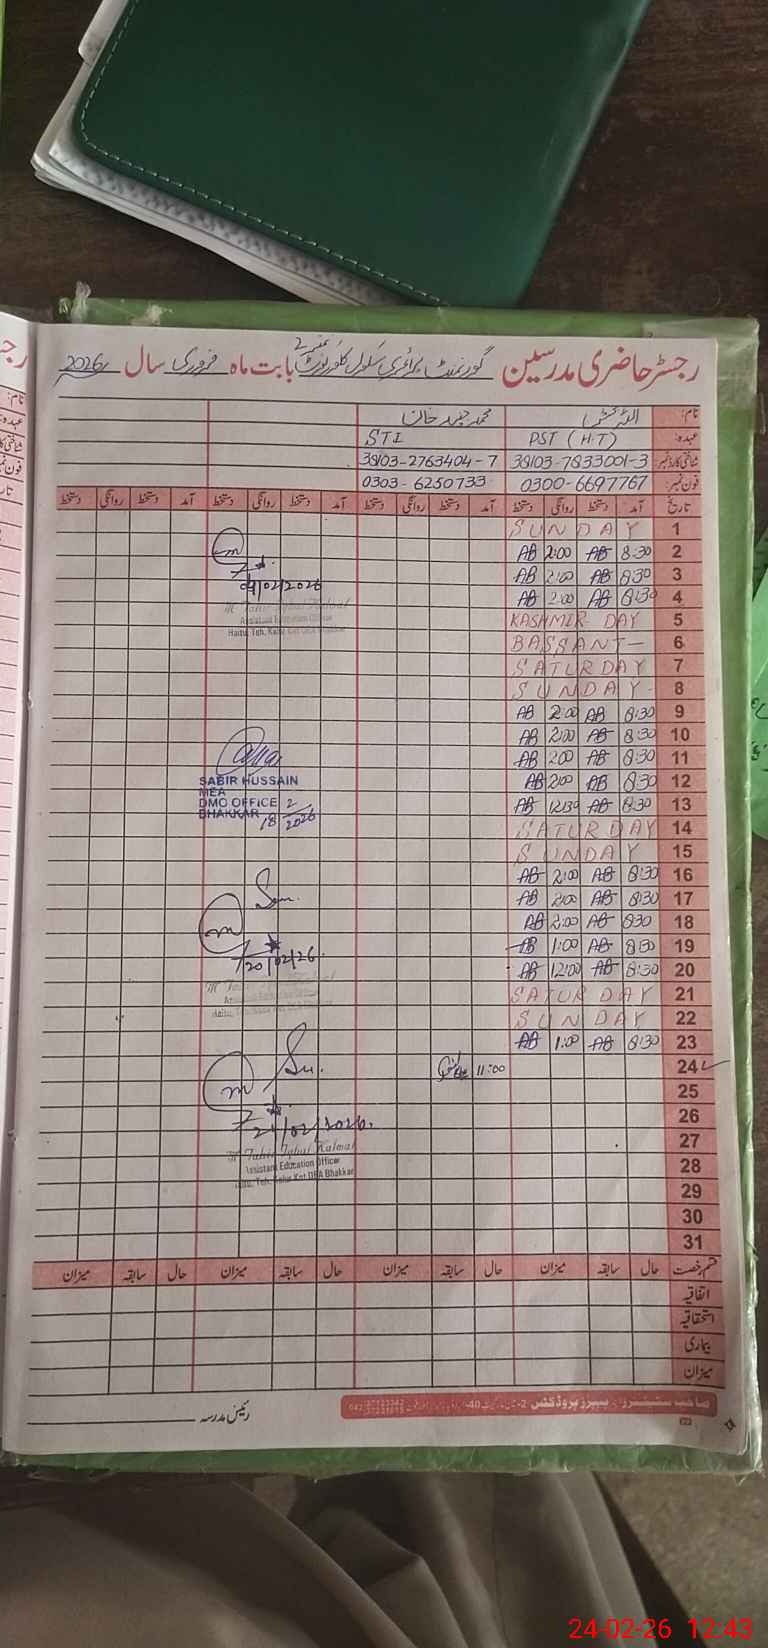 رجسٹر حاضری مدرسین گورنمنٹ پرائمری سکول کلورکوٹ نمبر 2 بابت ماہ فروری سال 2026
نام: اللہ بخش محمد جنید خان
عہدہ: PST (H.T) STI
شناختی کارڈ نمبر: 38103-7833001-3 38103-2763404-7
فون نمبر: 0300-6697767 0303-6250733
تاریخ آمد دستخط روانگی دستخط آمد دستخط روانگی دستخط آمد دستخط روانگی دستخط آمد دستخط روانگی دستخط
1 SUNDAY
2 8:30 AB 2:00 AB
3 8:30 AB 2:00 AB
4 8:30 AB 2:00 AB
04/02/2026
M Tahir Iqbal Kalwal
Assistant Education Officer
5 KASHMIR DAY
6 BASSANT
7 SATURDAY
8 SUNDAY
9 8:30 AB 2:00 AB
10 8:30 AB 2:00 AB
11 8:30 AB 2:00 AB
12 8:30 AB 2:00 AB
13 8:30 AB 12:30 AB
SABIR HUSSAIN
MEA
DMO OFFICE
BHAKKAR 18/2/2026
14 SATURDAY
15 SUNDAY
16 8:30 AB 2:00 AB
17 8:30 AB 2:00 AB
18 8:30 AB 2:00 AB
19 8:30 AB 1:00 AB
20 8:30 AB 12:00 AB
20/02/26
21 SATURDAY
22 SUNDAY
23 8:30 AB 1:00 AB
24 11:00
25
26
27
28
29
30
31
M Tahir Iqbal Kalwal
Assistant Education Officer
قسم رخصت حال سابقہ میزان حال سابقہ میزان حال سابقہ میزان حال سابقہ میزان
اتفاقیہ
استحقاقیہ
بیماری
میزان
صاحب سٹیشنرز اینڈ پیپرز پروڈکٹس
رئیس مدرسہ
24-02-26 12:43